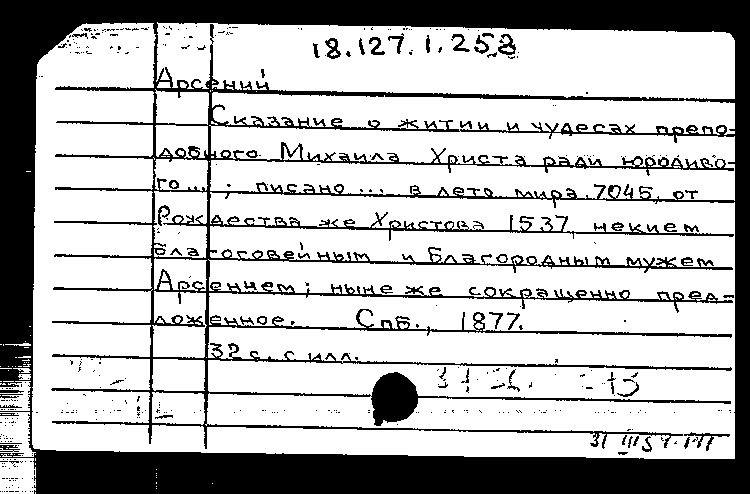 18.127.1.258
Арсений
Сказание о житии и чудесах препо-
добного Михаила Христа ради юродиво-
го...; писано... в лето мира 7045, от
Рождества же Христова 1537, некием
благоговейным и благородным мужем
Арсением; ныне же сокращенно пред-
ложенное. Спб., 1877.
32 с. с илл.